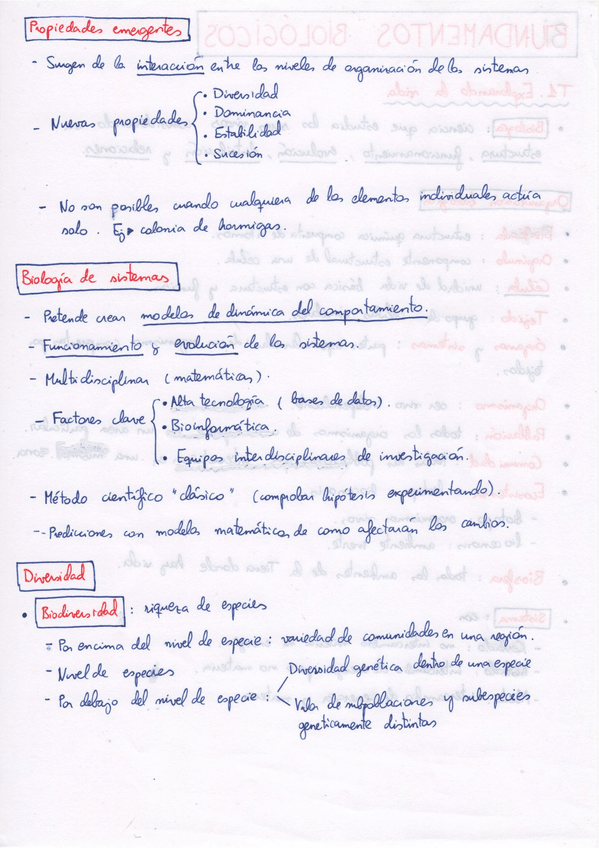 Propiedades emergentes
- Surgen de la interacción entre los niveles de organización de los sistemas
- Nuevas propiedades
• Diversidad
• Dominancia
• Estabilidad
• Sucesión
- No son posibles cuando cualquiera de los elementos individuales actúa
solo. Ej ▸ colonia de hormigas.
Biología de sistemas
- Pretende crear modelos de dinámica del comportamiento.
- Funcionamiento y evolución de los sistemas.
- Multidisciplinar (matemáticas).
- Factores clave
• Alta tecnología (bases de datos).
• Bioinformática.
• Equipos interdisciplinares de investigación.
- Método científico "clásico" (comprobar hipótesis experimentando).
- Predicciones con modelos matemáticos de como afectarán los cambios.
Diversidad
• Biodiversidad : riqueza de especies
- Por encima del nivel de especie : variedad de comunidades en una región.
- Nivel de especies
- Por debajo del nivel de especie :
Diversidad genética dentro de una especie
Valor de subpoblaciones y subespecies
genéticamente distintas